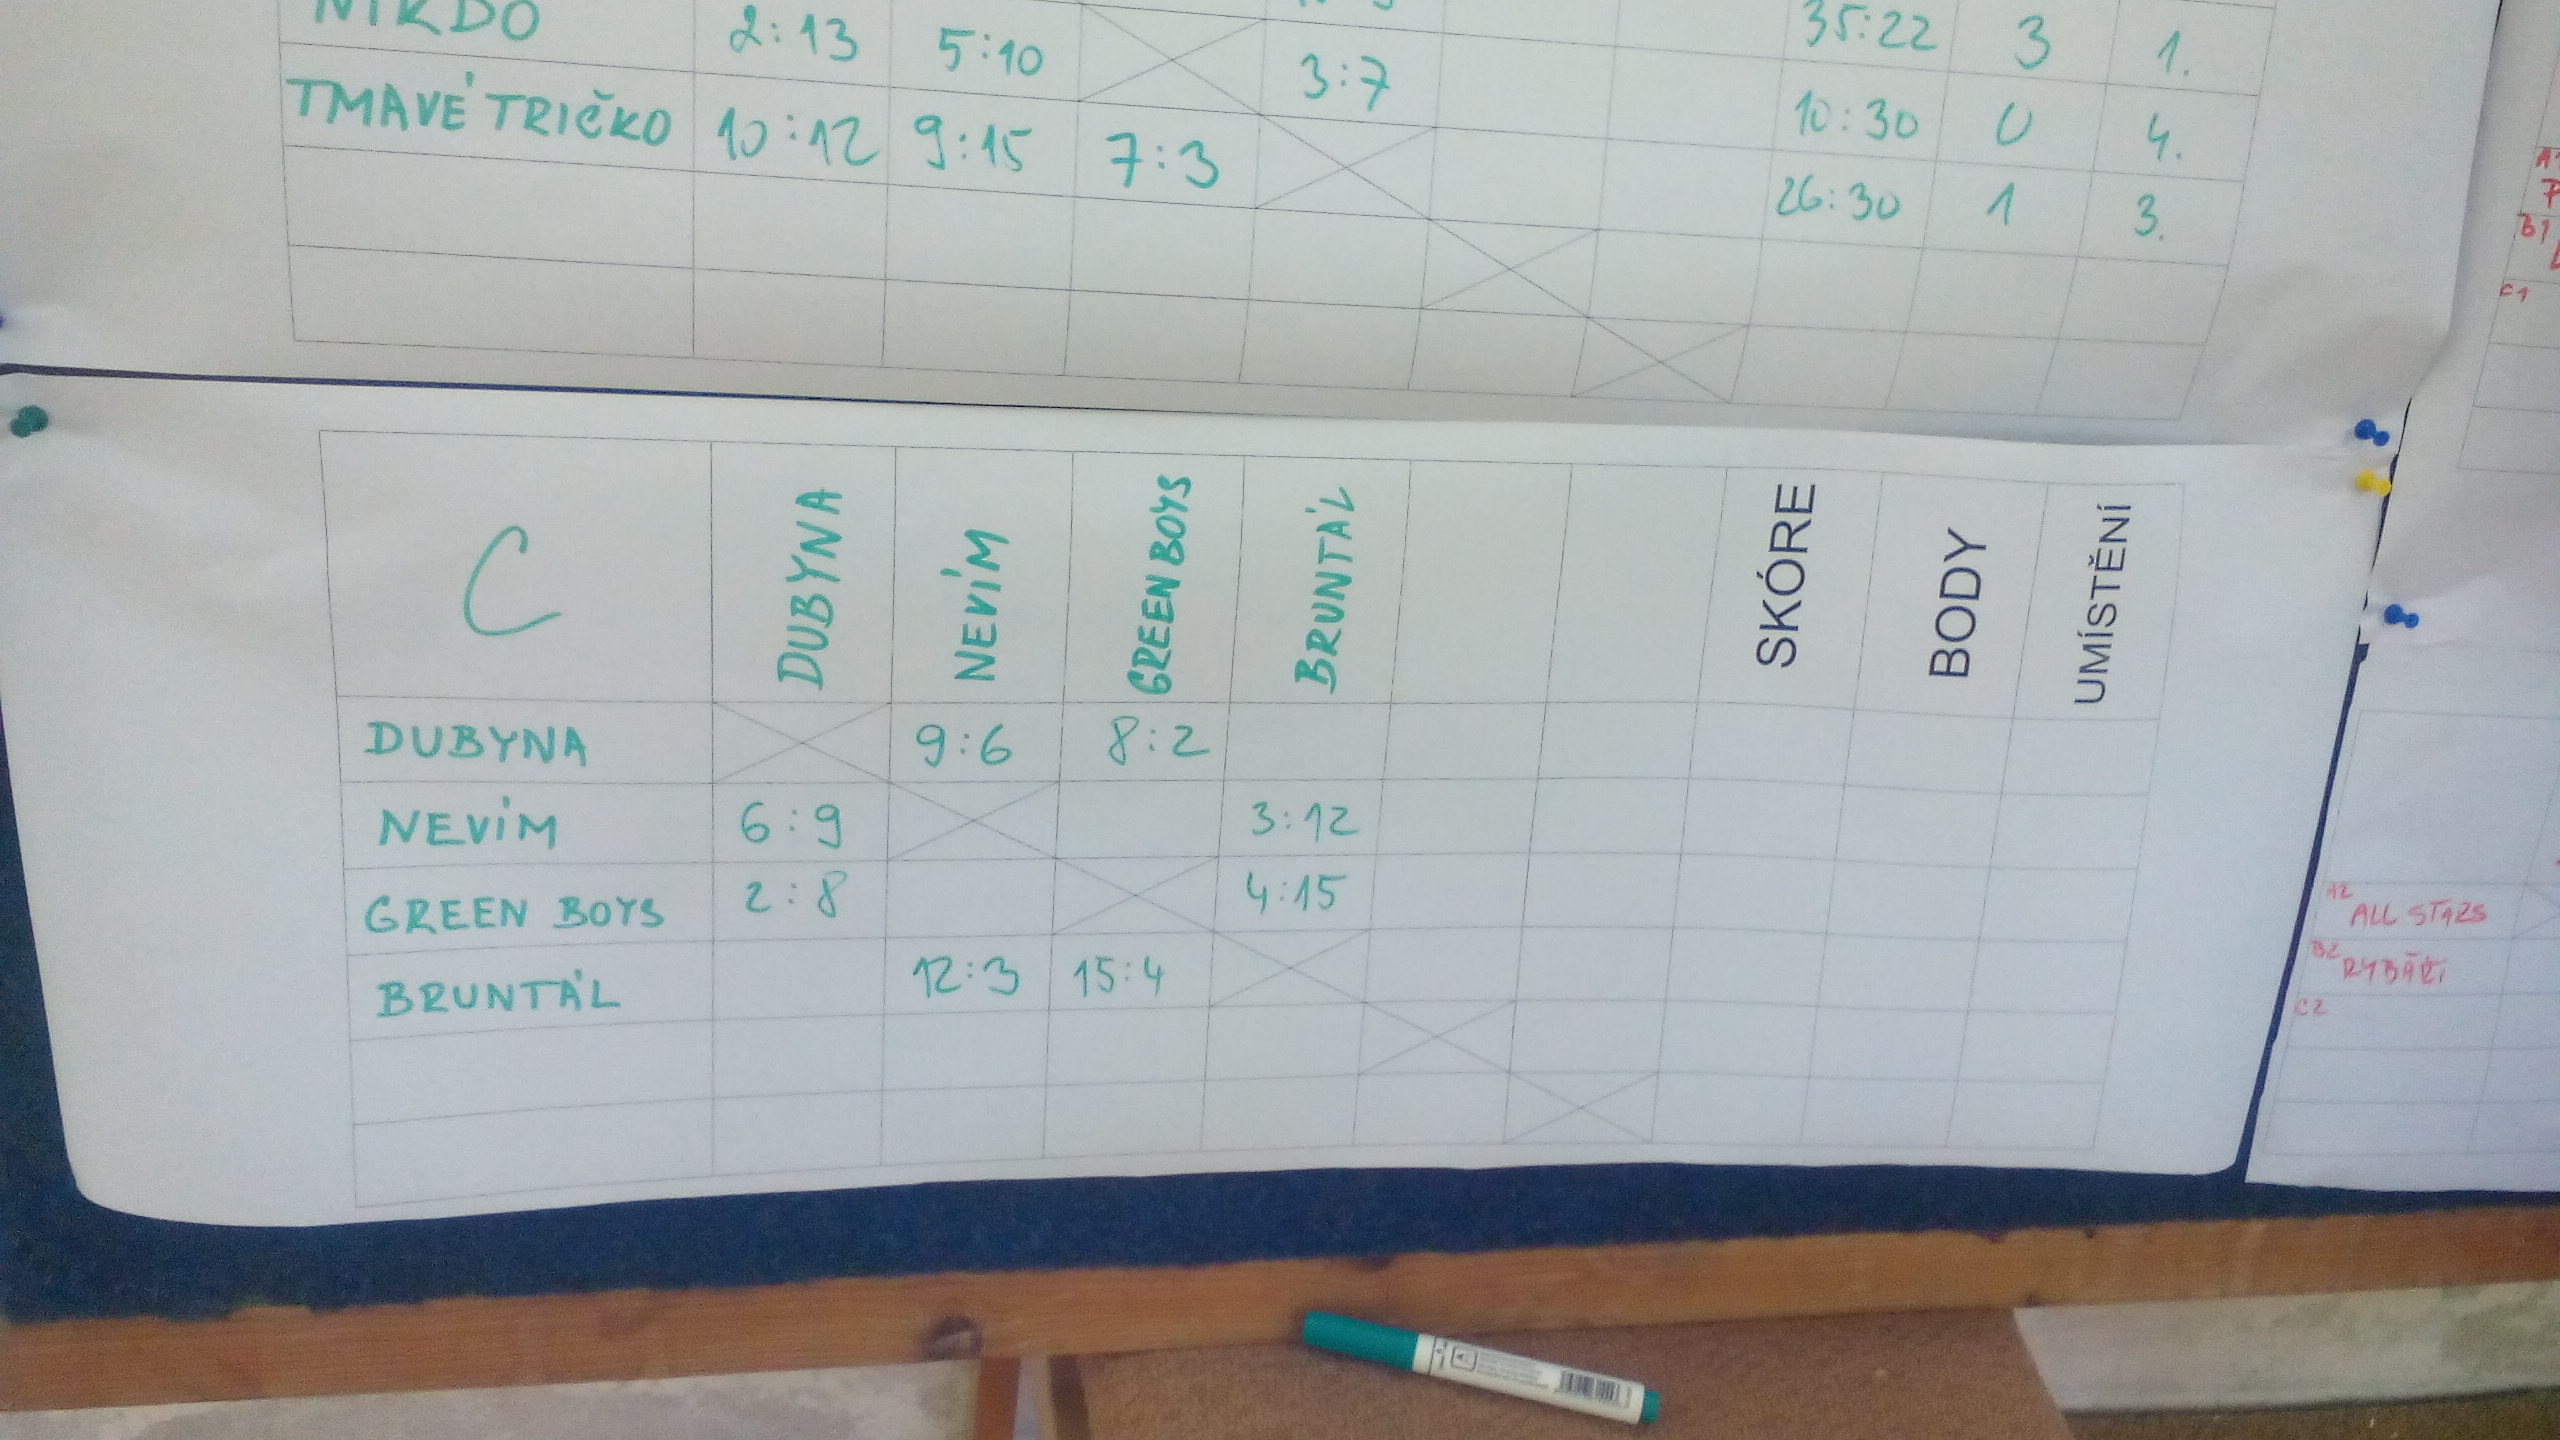 NIKDO 2:13 5:10 3:7 35:22 3 1.
TMAVÉ TRIČKO 10:12 9:15 7:3 10:30 0 4.
26:30 1 3.
C DUBYNA NEVÍM GREEN BOYS BRUNTÁL SKÓRE BODY UMÍSTĚNÍ
DUBYNA 9:6 8:2
NEVÍM 6:9 3:12
GREEN BOYS 2:8 4:15
BRUNTÁL 12:3 15:4
A1
B1
C1
A2 ALL STARS
B2 RYBÁŘI
C2